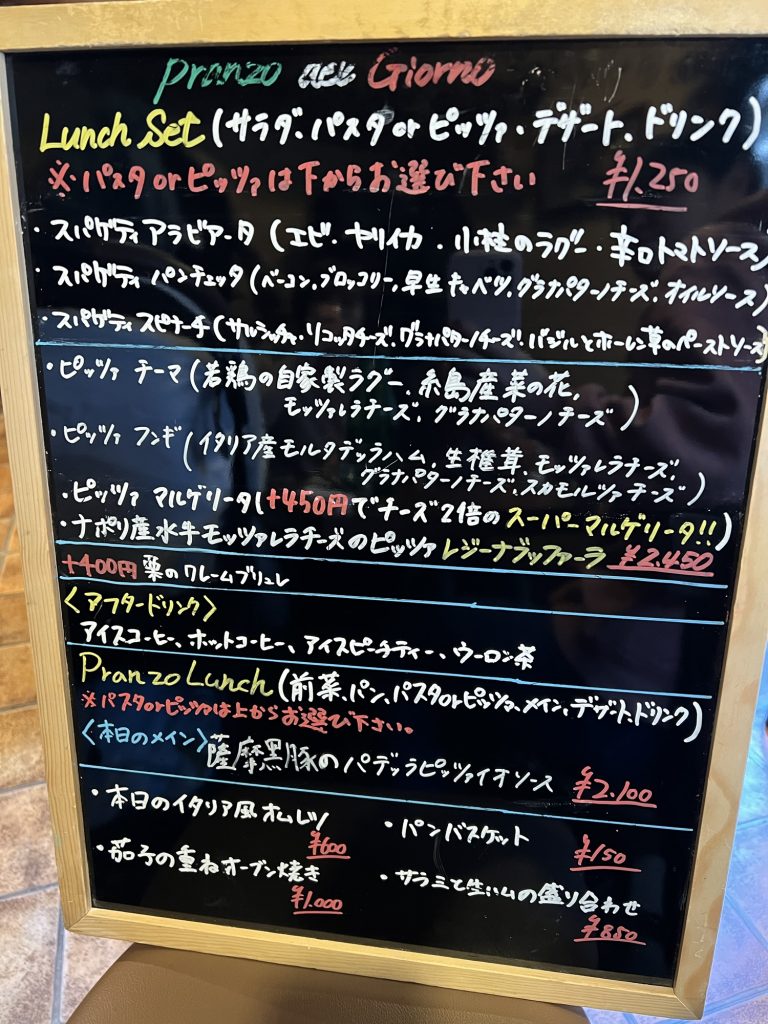 Pranzo del Giorno
Lunch Set (サラダ、パスタ or ピッツァ・デザート、ドリンク)
※パスタ or ピッツァは下からお選び下さい ¥1.250
・スパゲティ アラビアータ (エビ・ヤリイカ・小柱のラグー・辛口トマトソース)
・スパゲティ パンチェッタ (ベーコン、ブロッコリー、早生キャベツ、グラナパダーノチーズ、オイルソース)
・スパゲティ スピナーチ (サルシッチャ・リコッタチーズ、グラナパダーノチーズ、バジルとホーレン草のペーストソース)
・ピッツァ テーマ (若鶏の自家製ラグー、糸島産菜の花、
モッツァレラチーズ、グラナパダーノチーズ)
・ピッツァ フンギ (イタリア産モルタデッラハム、生椎茸、モッツァレラチーズ、
グラナパダーノチーズ、スカモルツァチーズ)
・ピッツァ マルゲリータ (+450円でチーズ2倍のスーパーマルゲリータ!!)
・ナポリ産水牛モッツァレラチーズのピッツァ レジーナブッファーラ ¥2.450
+400円 栗のクレームブリュレ
〈アフタードリンク〉
アイスコーヒー、ホットコーヒー、アイスピーチティー、ウーロン茶
Pranzo Lunch (前菜、パン、パスタorピッツァ、メイン、デザート、ドリンク)
※パスタorピッツァは上からお選び下さい。
〈本日のメイン〉薩摩黒豚のパデッラピッツァイオソース ¥2.100
・本日のイタリア風オムレツ ¥600
・パンバスケット ¥150
・茄子の重ねオーブン焼き ¥1.000
・サラミと生ハムの盛り合わせ ¥850